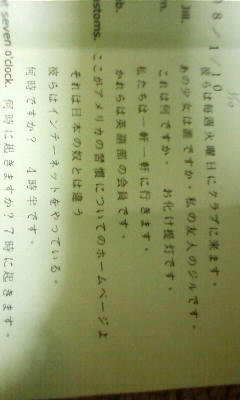 08/1/10
彼らは毎週火曜日にクラブに来ます。
あの少女は誰ですか。私の友人のジルです。
これは何ですか。お化け提灯です。
私たちは一軒一軒に行きます。
かれらは英語部の会員です。
ここがアメリカの習慣についてのホームページよ
それは日本の奴とは違う
彼らはインターネットをやっている。
何時ですか? 4時半です。
何時に起きますか?7時に起きます。
Jill.
m.
b.
stoms.
et seven o'clock.